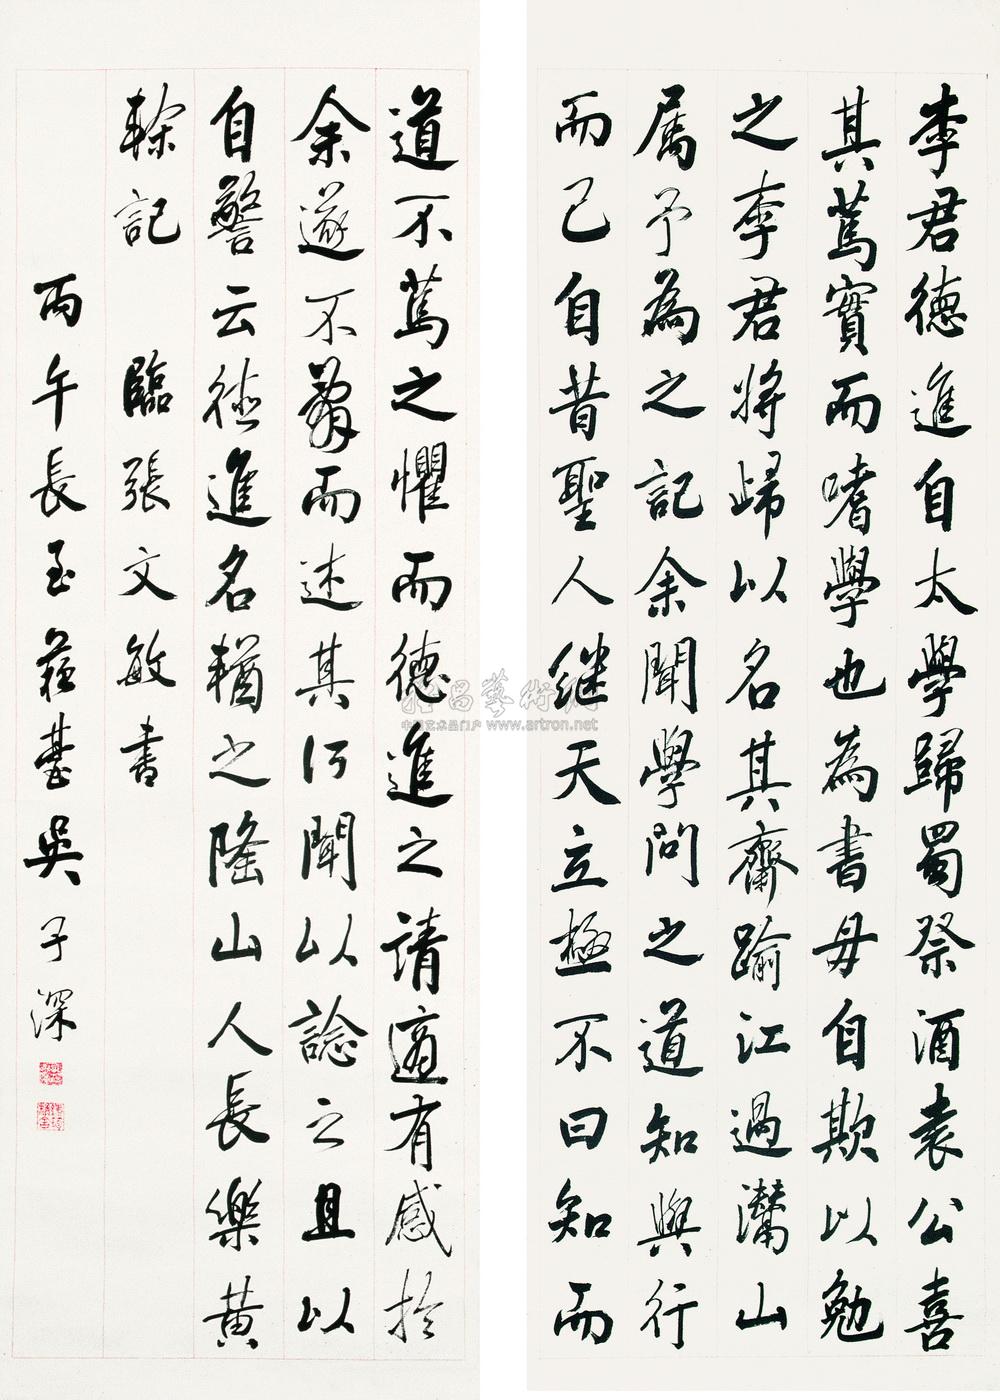 李君德進自太學歸蜀祭酒袁公喜
其篤實而嗜學也為書毋自欺以勉
之李君將歸以名其齋踰江過灊山
属予為之記余聞學問之道知與行
而已自昔聖人继天立極不曰知而
道不篤之懼而德進之請適有感於
余遂不辭而述其所聞以諗之且以
自警云德進名輶之隆山人長樂黃
榦記 臨張文敏書
丙午長至蘇臺吳子深
雅昌藝術網
中国艺术品门户 www.artron.net